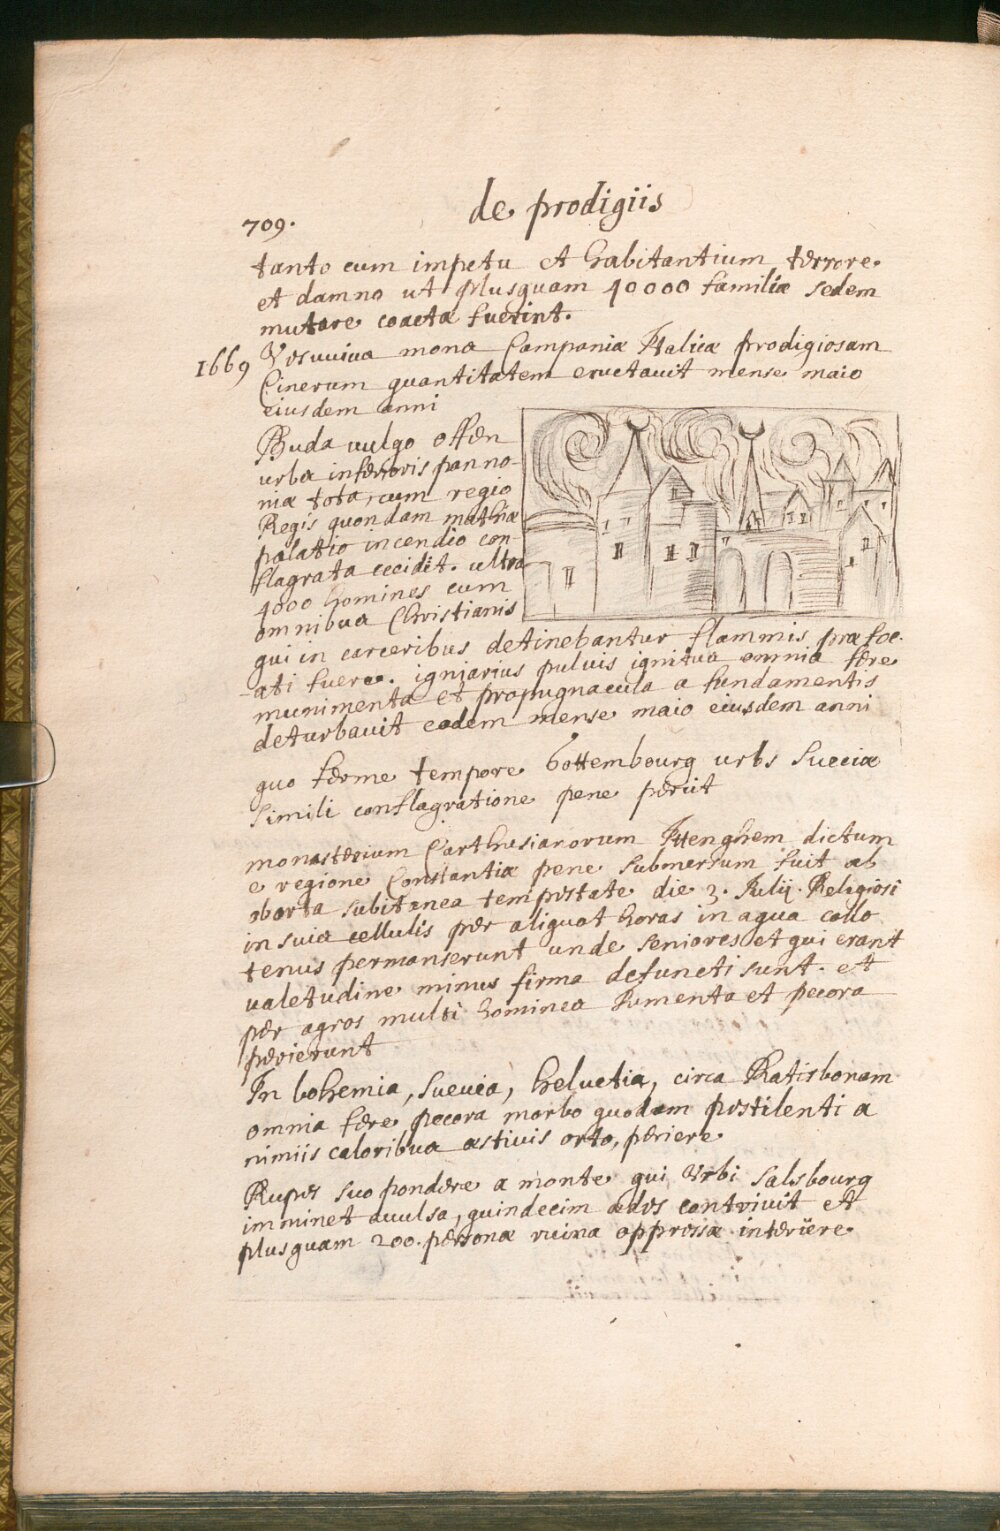 709.
de prodigiis
tanto cum impetu et habitantium terrore
et damno ut plusquam 40000 familiæ sedem
mutare coacta fuerint.
1669 Vesuvius mons Campaniæ Italicæ prodigiosam
Cinerum quantitatem eructavit mense maio
eiusdem anni
Buda vulgo offen
urbs inferioris panno-
niæ tota, cum regio
Regis quondam mathiæ
palatio incendio con-
flagrata cecidit. ultra
4000 homines cum
omnibus Christianis
qui in carceribus detinebantur flammis præfoc-
-ati fuere. igniarius pulvis ignitus omnia fere
munimenta et propugnacula a fundamentis
deturbavit eodem mense maio eiusdem anni
quo ferme tempore Gottembourg urbs Sueciæ
simili conflagratione pene periit
monasterium Carthusianorum Ittenghem dictum
e regione Constantiæ pene submersum fuit ab
oborta subitanea tempestate die 3. Julij. Religiosi
in suis cellulis per aliquot horas in aqua collo
tenus permanserunt unde seniores et qui erant
valetudine minus firma defuncti sunt. et
per agros multi homines Jumenta et pecora
perierunt
In bohemia, Suevia, helvetia, circa Ratisbonam
omnia fere pecora morbo quodam pestilenti a
nimiis caloribus æstivis orto, periere
Rupes suo pondere a monte qui Urbi Salsbourg
imminet avulsa, quindecim ædes contrivit et
plusquam 200. personæ ruina oppressæ interiere